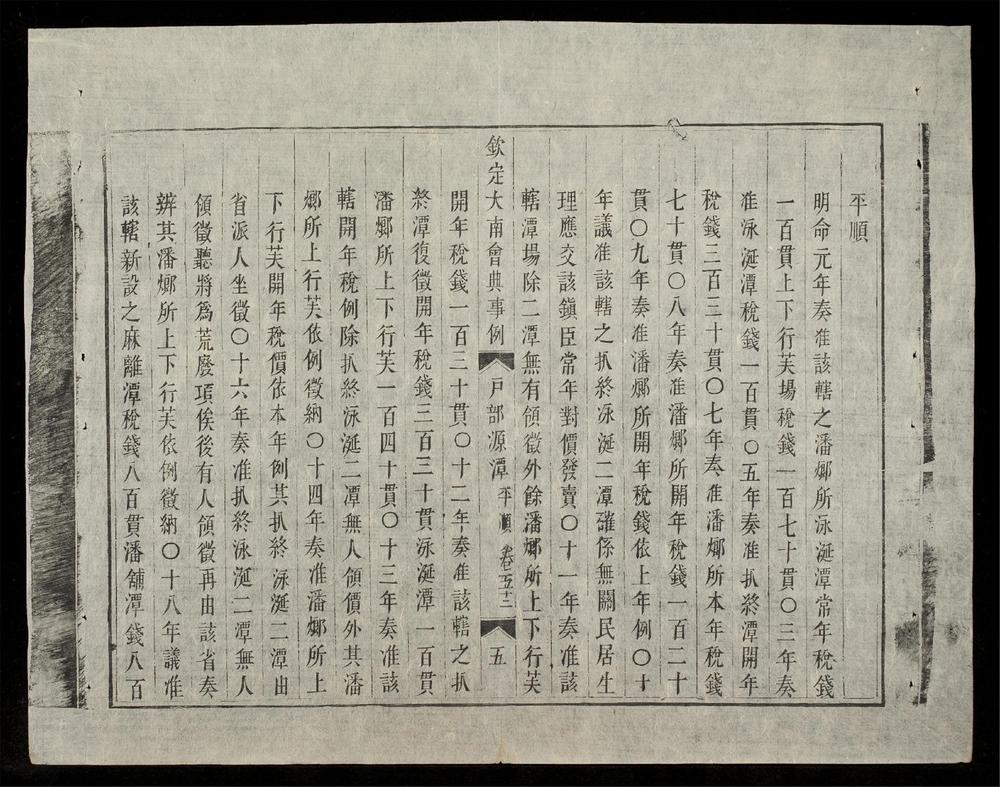 平順
明命元年奏准該轄之潘鄉所泳涎潭常年稅錢
一百貫上下行芙場稅錢一百七十貫〇三年奏
准泳涎潭稅錢一百貫〇五年奏准扒終潭開年
稅錢三百三十貫〇七年奏准潘鄉所本年稅錢
七十貫〇八年奏准潘鄉所開年稅錢一百二十
貫〇九年奏准潘鄉所開年稅錢依上年例〇十
年議准該轄之扒終泳涎二潭確係無關民居生
理應交該鎮臣常年對價發賣〇十一年奏准該
轄潭場除二潭無有領徵外餘潘鄉所上下行芙
欽定大南會典事例 戶部源潭 平順 卷五十二 五
開年稅錢一百三十貫〇十二年奏准該轄之扒
終潭復徵開年稅錢三百三十貫泳涎潭一百貫
潘鄉所上下行芙一百四十貫〇十三年奏准該
轄開年稅例除扒終泳涎二潭無人領價外其潘
鄉所上行芙依例徵納〇十四年奏准潘鄉所上
下行芙開年稅價依本年例其扒終泳涎二潭由
省派人坐徵〇十六年奏准扒終泳涎二潭無人
領徵聽將爲荒廢項俟後有人領徵再由該省奏
辨其潘鄉所上下行芙依例徵納〇十八年議准
該轄新設之麻離潭稅錢八百貫潘舖潭錢八百